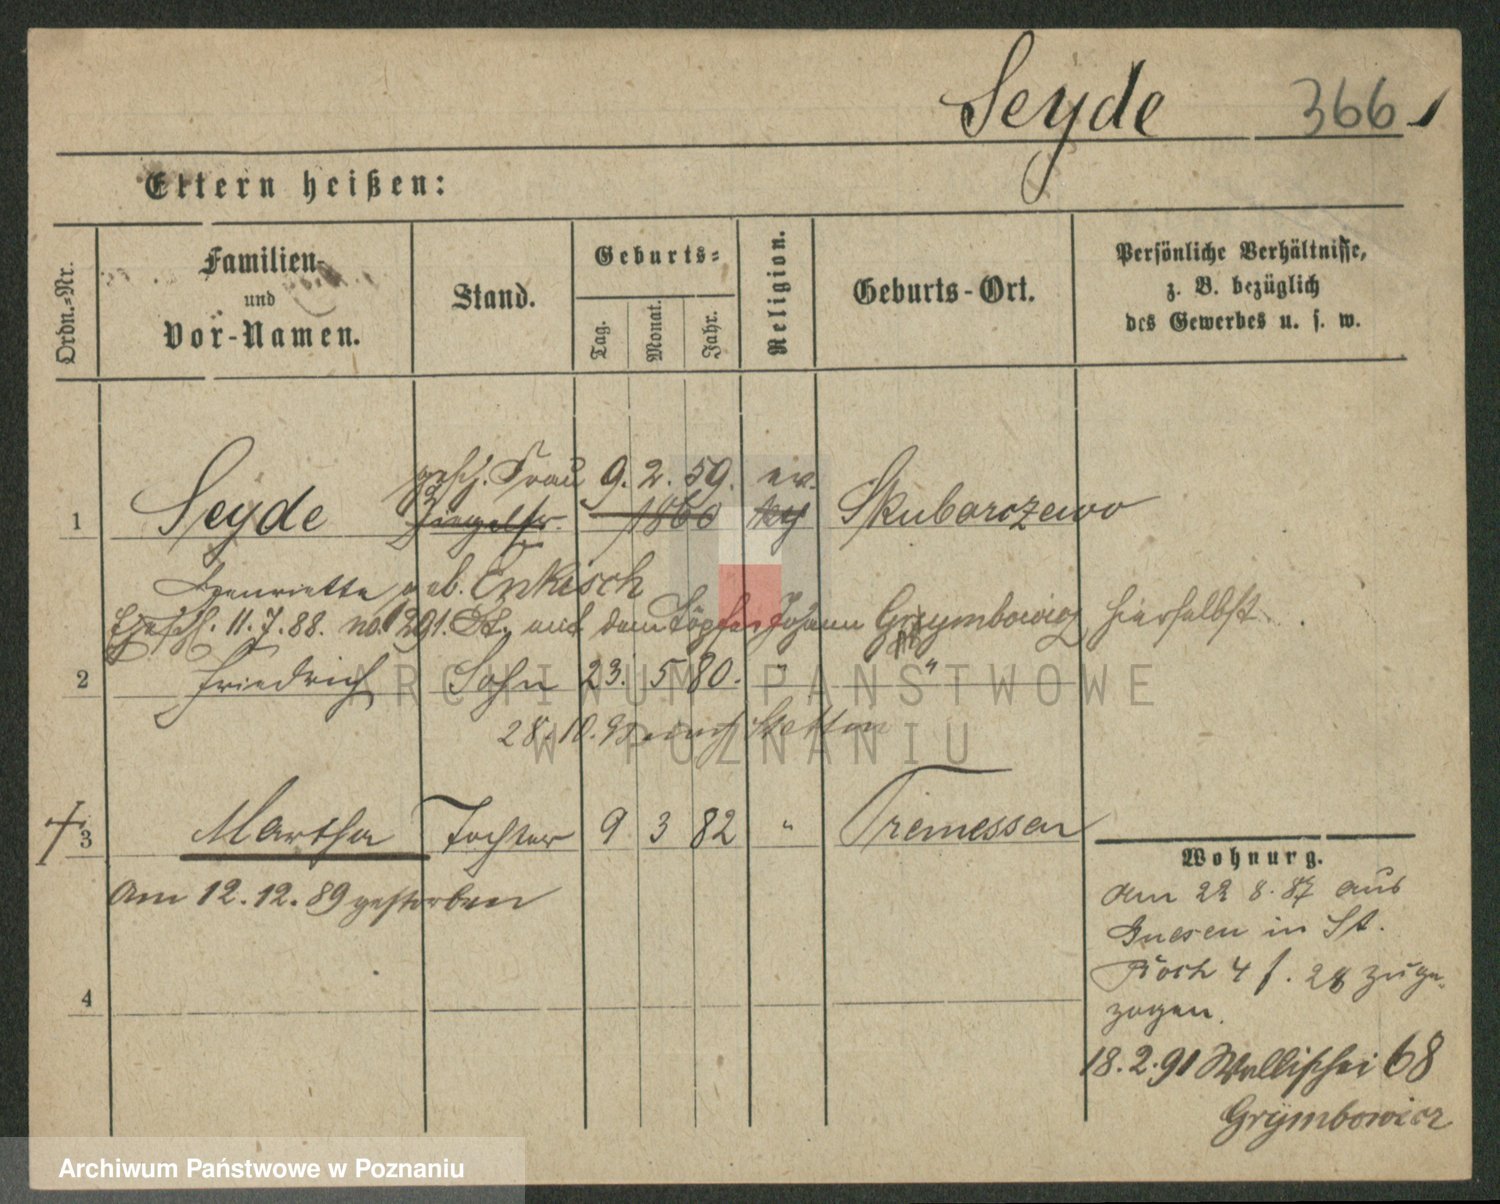 Seyde 366
Eltern heißen:
Ordn.-Nr.
Familien-
und
Vor-Namen.
Stand.
Geburts-
Tag.
Monat.
Jahr.
Religion.
Geburts-Ort.
Persönliche Verhältnisse,
z. B. bezüglich
des Gewerbes u. s. w.
gesch. Frau 9. 2. 59. ev.
1 Seyde 1860 Skubarczewo
Henriette geb. Enkisch
Ehesch. 11. 7. 88. no. 1291. St. mit dem Töpfer Johann Grymbowicz hierselbst.
2 Friedrich Sohn 23. 5 80. " "
28. 10. 95 nach Stettin
3 Martha Tochter 9 3 82 " Tremessen
am 12. 12. 89 gestorben
4
Wohnung.
Am 22 8. 87 aus
Gnesen in St.
Roch 4 f. 28 zuge-
zogen.
18. 2. 91 Wallischei 68
Grymbowicz
ARCHIWUM PAŃSTWOWE
W POZNANIU
Archiwum Państwowe w Poznaniu